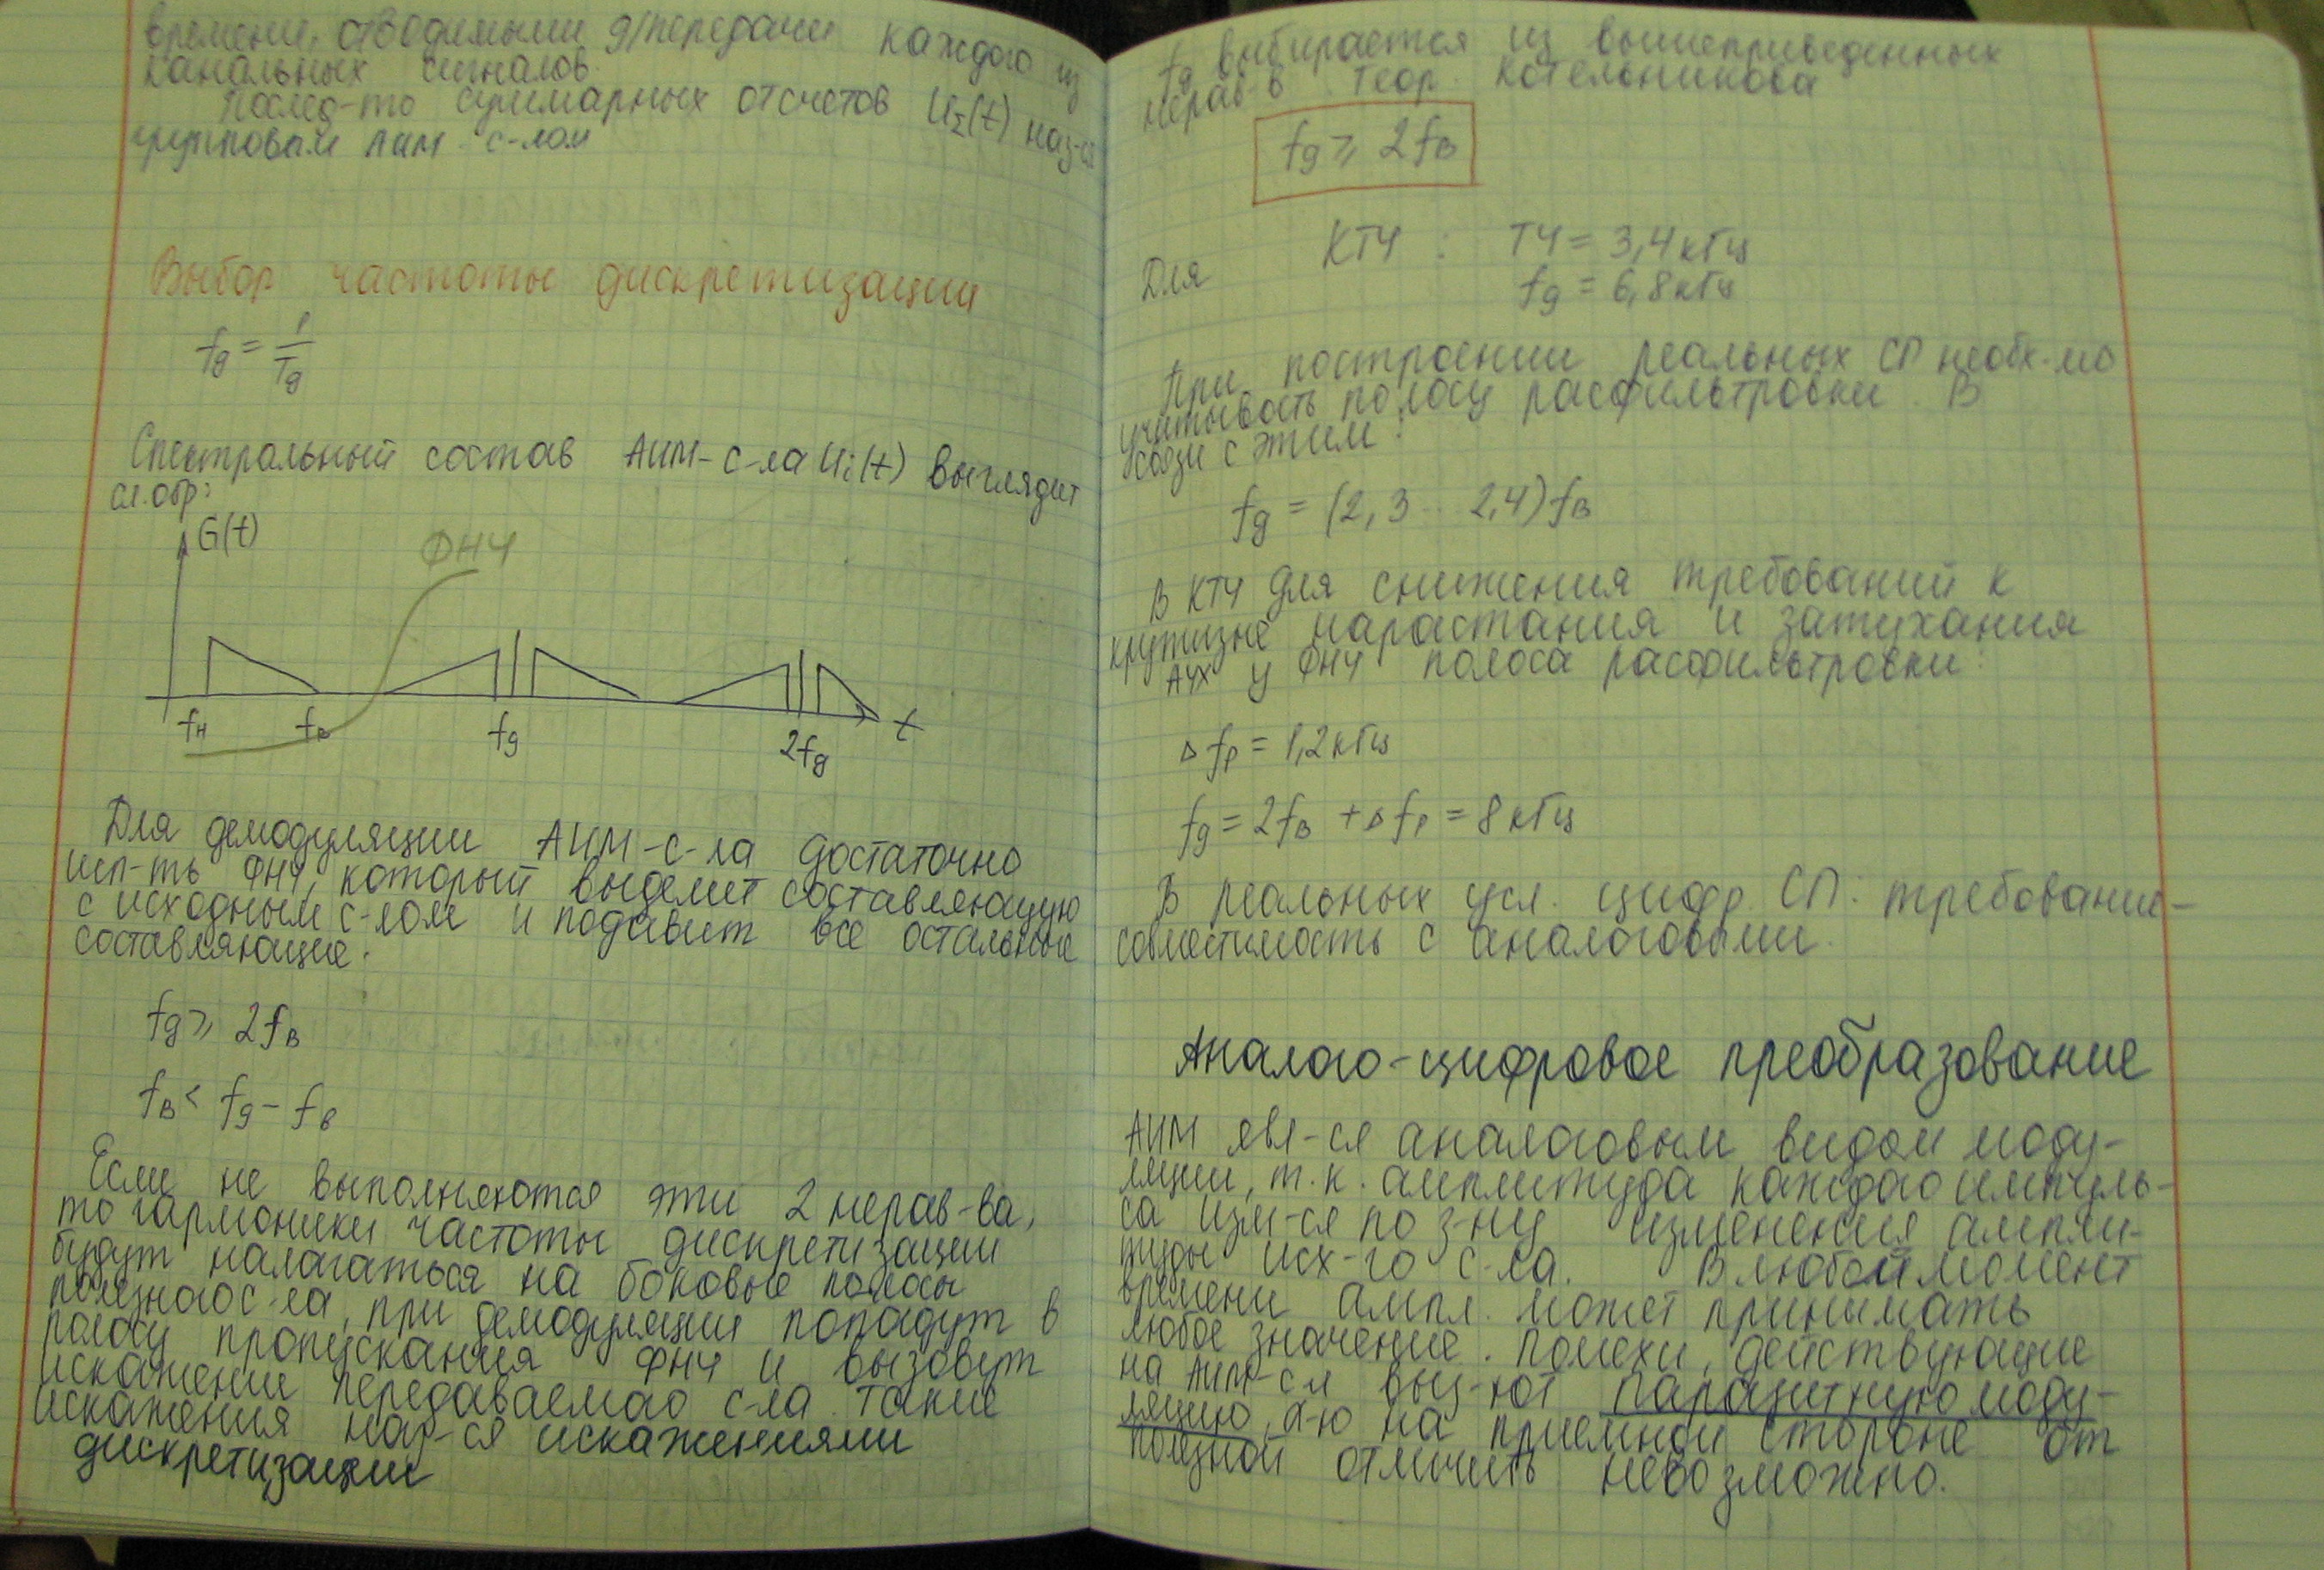 времени, отводимыми д/передачи каждого из
канальных сигналов.
Послед-то суммарных отсчетов U_Σ(t) наз-ся
групповым АИМ с-лом
Выбор частоты дискретизации
fд = 1/Tд
Спектральный состав АИМ-с-ла Ui(t) выглядит
сл. обр:
G(t)
ФНЧ
fн fв fд 2fд t
Для демодуляции АИМ-с-ла достаточно
исп-ть ФНЧ, который выделит составляющую
с исходным с-лом и подавит все остальные
составляющие.
fд ⩾ 2fв
fв < fд - fв
Если не выполняются эти 2 нерав-ва,
то гармоники частоты дискретизации
будут налагаться на боковые полосы
полезного с-ла, при демодуляции попадут в
полосу пропускания ФНЧ и вызовут
искажении передаваемого с-ла. Такие
искажения наз-ся искажениями
дискретизации
fд выбирается из вышеприведенных
нерав-в теор. Котельникова
fд ⩾ 2fв
Для КТЧ : ТЧ = 3,4 кГц
fд = 6,8 кГц
При построении реальных СП необх-мо
учитывать полосу расфильтровки. В
связи с этим:
fд = (2,3 .. 2,4) fв
В КТЧ для снижения требований к
крутизне нарастания и затухания
АЧХ у ФНЧ полоса расфильтровки:
Δfр = 1,2 кГц
fд = 2fв + Δfр = 8 кГц
В реальных усл. цифр. СП: требование-
совместимость с аналоговыми.
Аналого-цифровое преобразование
АИМ явл-ся аналоговым видом моду-
ляции, т.к. амплитуда каждого импуль-
са изм-ся по з-ну изменения ампли-
туды исх-го с-ла. В любой момент
времени ампл. может принимать
любое значение. Помехи, действующие
на АИМ-с-л выз-ют паразитную моду-
ляцию, а-ю на приемной стороне от
полезной отличить невозможно.